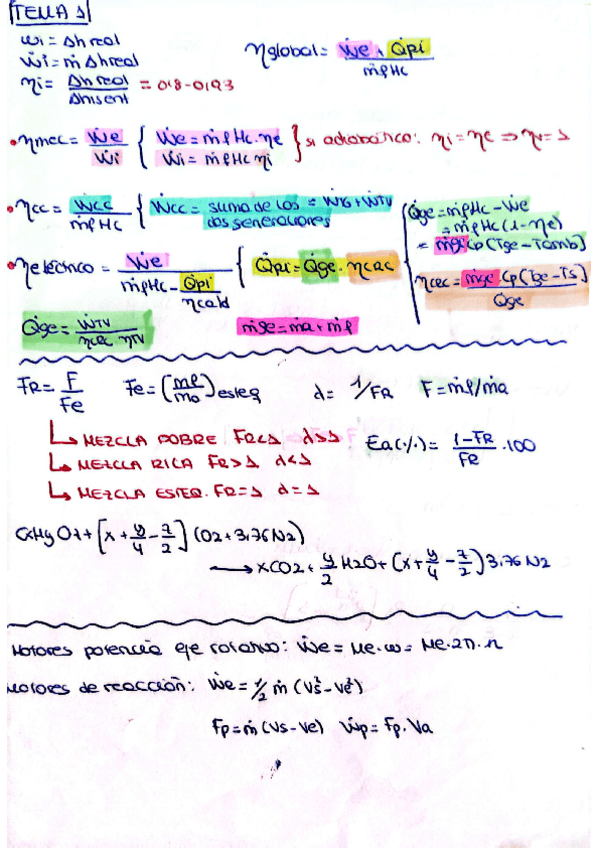 TEMA 1
wi = Δh real
Ẇi = ṁ Δh real
ηi = Δh real / Δh isent = 0'8-0'93
ηglobal = Ẇe + Q̇pi / ṁf Hc
• ηmec = Ẇe / Ẇi { Ẇe = ṁf Hc · ηe
Ẇi = ṁf Hc ηi } si adiabático: ηi = ηe ⇒ η = 1
• ηcc = Ẇcc / ṁf Hc { Ẇcc = suma de las dos generaciones = ẆTG + ẆTV
• ηeléctrico = Ẇe / ṁf Hc - Q̇pi / ηcald { Q̇pi = Q̇ge · ηcac
{ Q̇ge = ṁf Hc - Ẇe
= ṁf Hc (1 - ηe)
= ṁge Cp (Tge - Tamb)
ηcac = ṁge · Cp (Tge - Ts) / Q̇ge
Q̇ge = ẆTV / ηcac · ηTV
ṁge = ṁa + ṁf
FR = F / Fe
Fe = (mf / mo) esteq
λ = 1/FR
F = ṁf/ṁa
↳ MEZCLA POBRE FR<1 λ>1
↳ MEZCLA RICA FR>1 λ<1
↳ MEZCLA ESTEQ. FR=1 λ=1
Ea(%) = 1-FR / FR · 100
CxHyOz + [x + y/4 - z/2] (O2 + 3,76N2)
⟶ xCO2 + y/2 H2O + (x + y/4 - z/2) 3,76 N2
Motores potencia eje rotativo: Ẇe = Me · ω = Me · 2π · n
Motores de reacción: Ẇe = 1/2 ṁ (Vs² - Ve²)
Fp = ṁ (Vs - Ve) Ẇp = Fp · Va